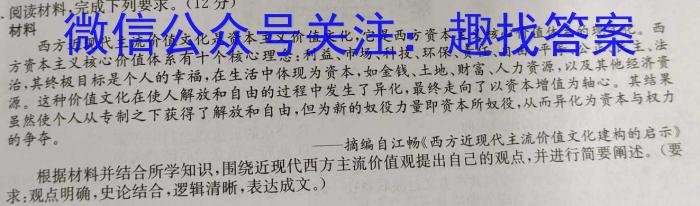 阅读材料,完成下列要求。(12分)
微信公众号关注：趣找答案
材料
西方近现代主流价值文化是资本主义价值文化,它是西方资本主义核心价值体系的
方资本主义核心价值体系有十个核心理念:利益、市场、科技、环保、责任、自由、平等、公正、民主、法
治,其终极目标是个人的幸福,在生活中体现为资本,如金钱、土地、财富、人力资源,以及其他经济资
源。这种价值文化在使人解放和自由的过程中发生了异化,最终走向了以资本增值为轴心。其结果
虽然使个人从专制之下获得了解放和自由,但为新的奴役力量即资本所奴役,从而异化为资本与权力
的争夺。
——摘编自江畅《西方近现代主流价值文化建构的启示》
根据材料并结合所学知识,围绕近现代西方主流价值观提出自己的观点,并进行简要阐述。(要
求:观点明确,史论结合,逻辑清晰,表达成文。)